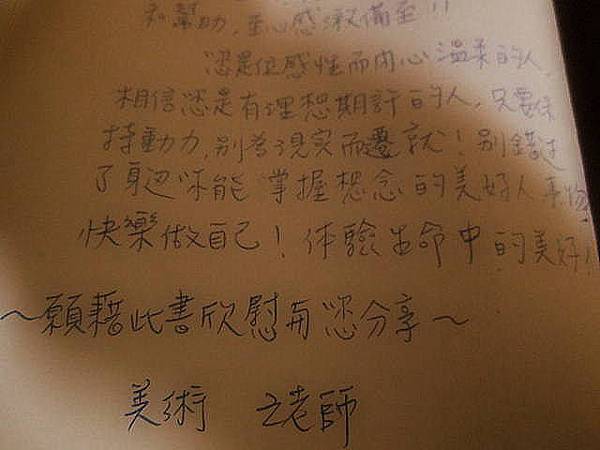 和幫助,至心感激備至!!
您是位感性而內心溫柔的人,
相信您是有理想期許的人,只要保
持動力,別為現實而遷就!別錯過
了身邊你能掌握想念的美好人事物
快樂做自己!体驗生命中的美好!
~願藉此書欣慰與您分享~
美術 老師